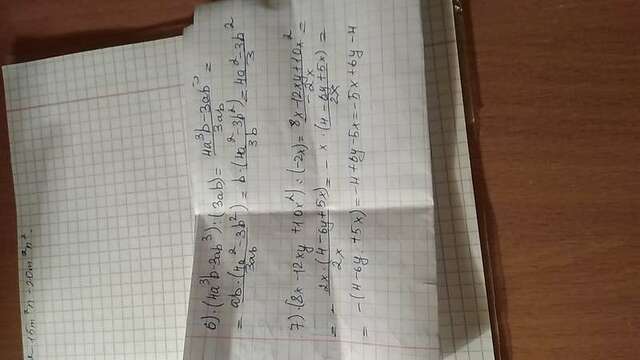 6) (4a³b-3ab³):(3ab) = (4a³b-3ab³)/(3ab) =
= ab·(4a²-3b²)/(3ab) = b·(4a²-3b²)/(3b) = (4a²-3b²)/3
7) (8x-12xy+10x²):(-2x) = (8x-12xy+10x²)/(-2x) =
= - 2x·(4-6y+5x)/(2x) = - x·(4-6y+5x)/(2x) =
= -(4-6y+5x) = -4+6y-5x = -5x+6y-4
15m³n - 20m²n²